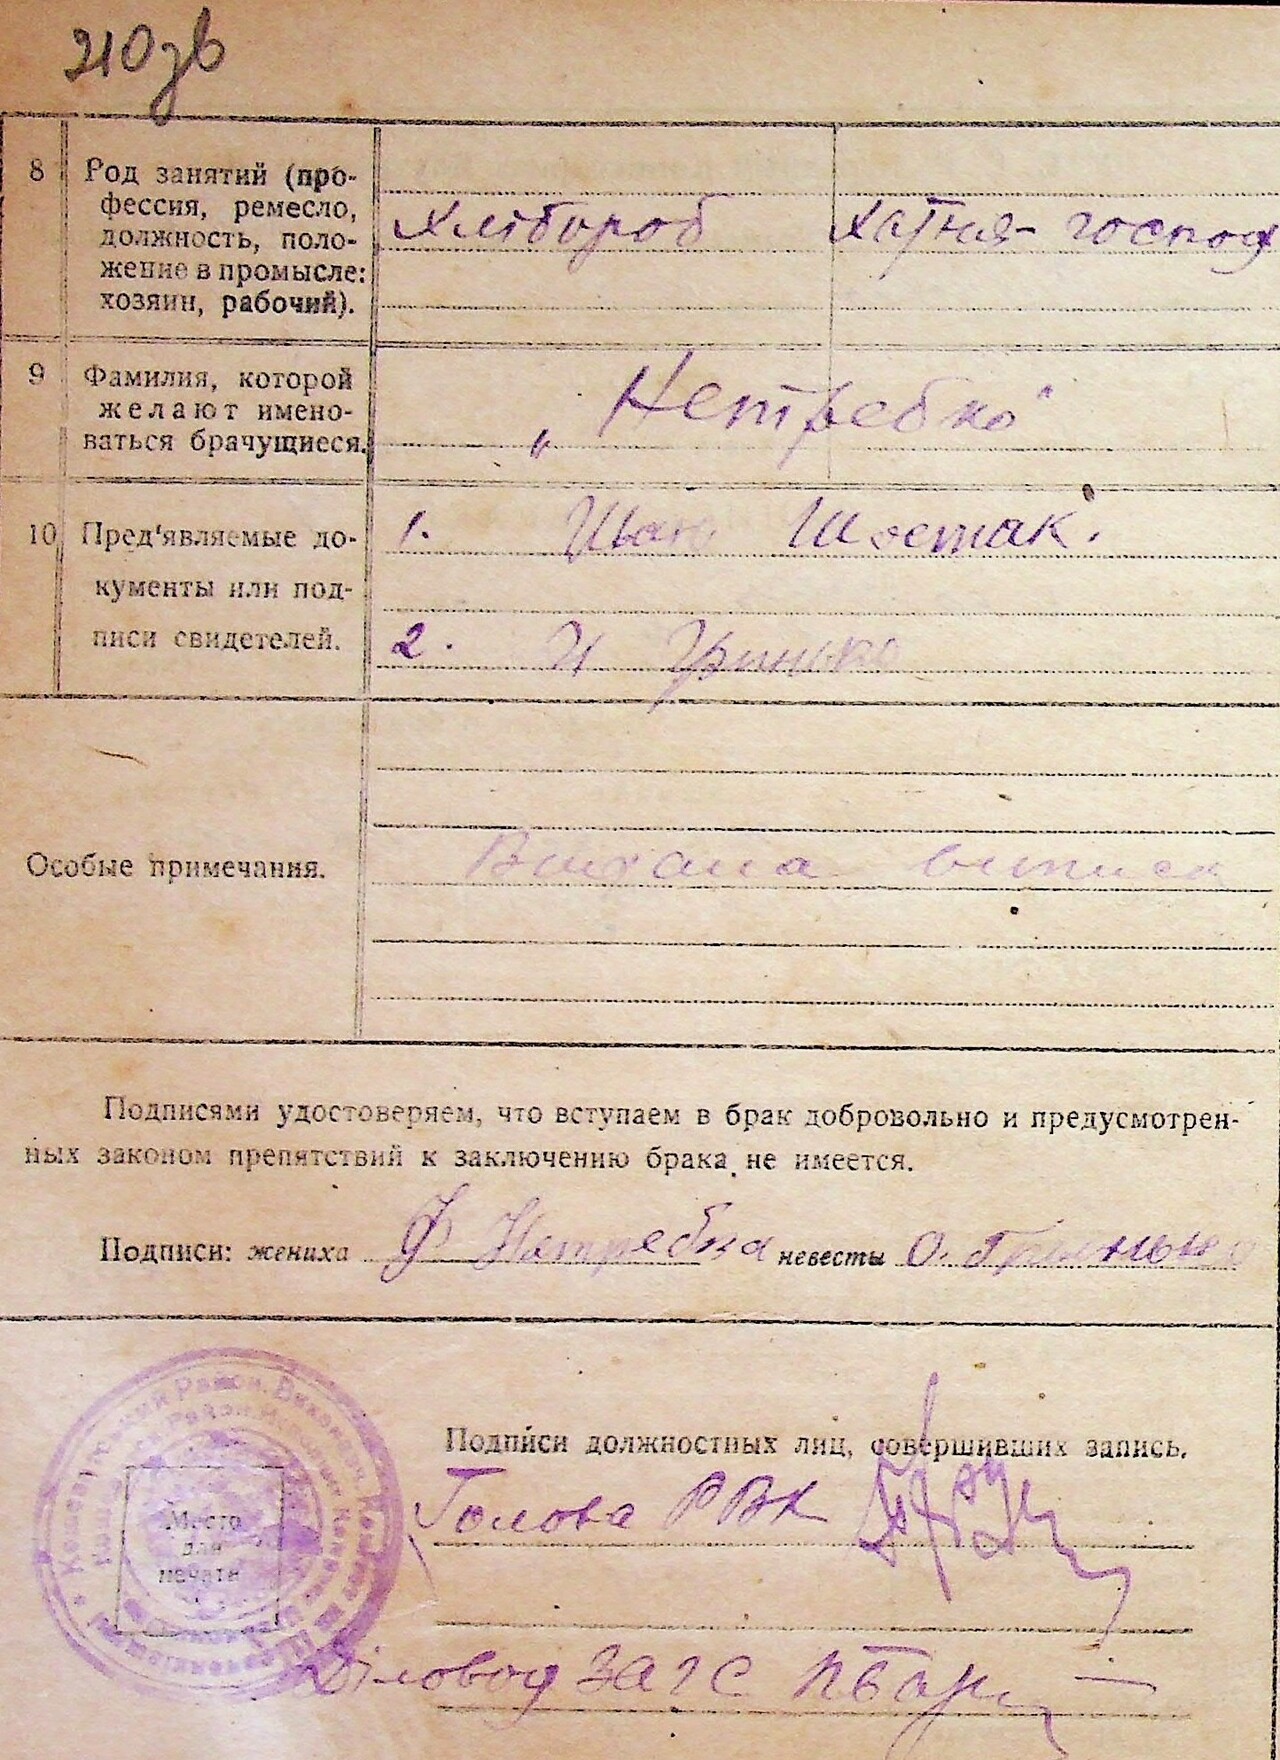 210зв
8 Род занятий (про-
фессия, ремесло,
должность, поло-
жение в промысле:
хозяин, рабочий).
Хлібороб
Хатня- господ
9 Фамилия, которой
желают имено-
ваться брачущиеся.
„Нетребко"
10 Пред'являемые до-
кументы или под-
писи свидетелей.
1. Иван Шостак.
2. И Гринько
Особые примечания.
Видана виписк
Подписями удостоверяем, что вступаем в брак добровольно и предусмотрен-
ных законом препятствий к заключению брака не имеется.
Подписи: жениха Ф Нетребка невесты О. Гринько
Подписи должностных лиц, совершивших запись.
Голова РВК
Место
для
печати
Діловод ЗАГС